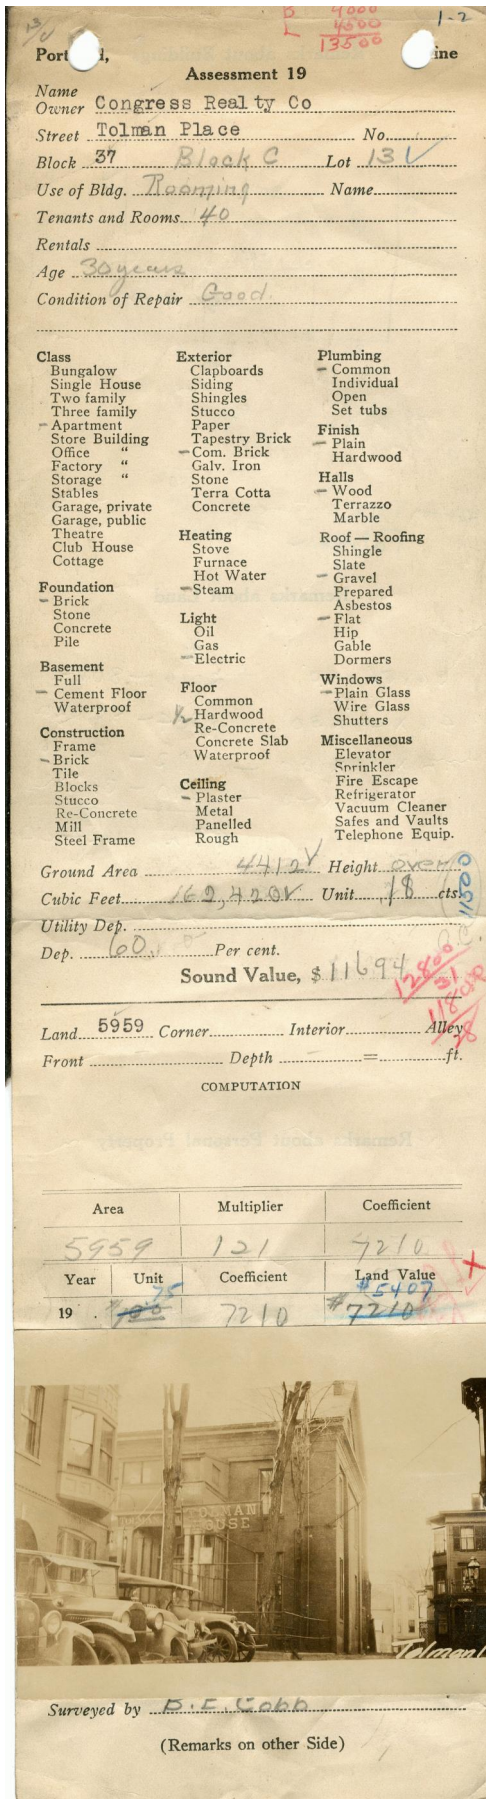 13/V
B 9000
L 4500
13500
1-2
Port d, ine
Assessment 19
Name
Owner Congress Realty Co
Street Tolman Place No.
Block 37 Block C Lot 13 V
Use of Bldg. Rooming Name
Tenants and Rooms 40
Rentals
Age 30 years
Condition of Repair Good.
Class
Bungalow
Single House
Two family
Three family
- Apartment
Store Building
Office "
Factory "
Storage "
Stables
Garage, private
Garage, public
Theatre
Club House
Cottage
Foundation
- Brick
Stone
Concrete
Pile
Basement
Full
- Cement Floor
Waterproof
Construction
Frame
- Brick
Tile
Blocks
Stucco
Re-Concrete
Mill
Steel Frame
Exterior
Clapboards
Siding
Shingles
Stucco
Paper
Tapestry Brick
- Com. Brick
Galv. Iron
Stone
Terra Cotta
Concrete
Heating
Stove
Furnace
Hot Water
- Steam
Light
Oil
Gas
- Electric
Floor
Common
1/2 Hardwood
Re-Concrete
Concrete Slab
Waterproof
Ceiling
- Plaster
Metal
Panelled
Rough
Plumbing
- Common
Individual
Open
Set tubs
Finish
- Plain
Hardwood
Halls
- Wood
Terrazzo
Marble
Roof — Roofing
Shingle
Slate
- Gravel
Prepared
Asbestos
- Flat
Hip
Gable
Dormers
Windows
- Plain Glass
Wire Glass
Shutters
Miscellaneous
Elevator
Sprinkler
Fire Escape
Refrigerator
Vacuum Cleaner
Safes and Vaults
Telephone Equip.
Ground Area 4412 V Height over
Cubic Feet 162,420 V Unit .18 cts.
11500
Utility Dep.
Dep. 60 Per cent.
Sound Value, $ 11694
12800
31
11800
28
Land 5959 Corner Interior Alley
Front Depth = ft.
COMPUTATION
Area Multiplier Coefficient
5959 121 7210
Year Unit Coefficient Land Value
75 $5407
19 . $1.00 7210 $7210
TOLMAN
HOUSE
Tolman
Surveyed by B. E. Cobb
(Remarks on other Side)